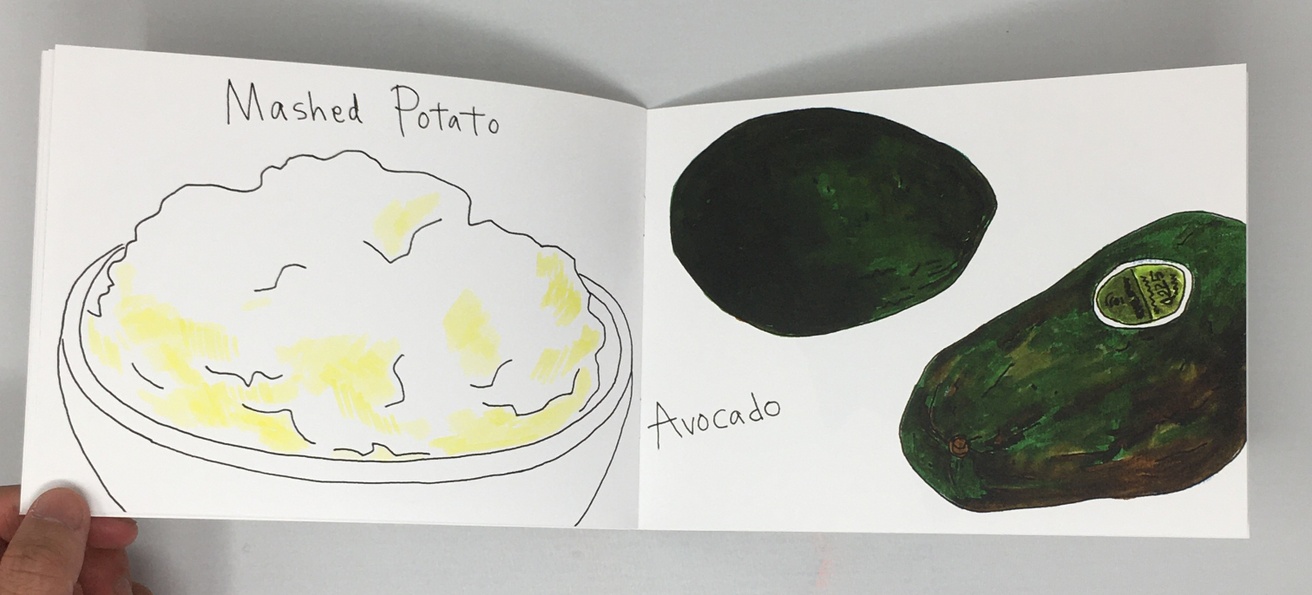 Mashed Potato
Avocado